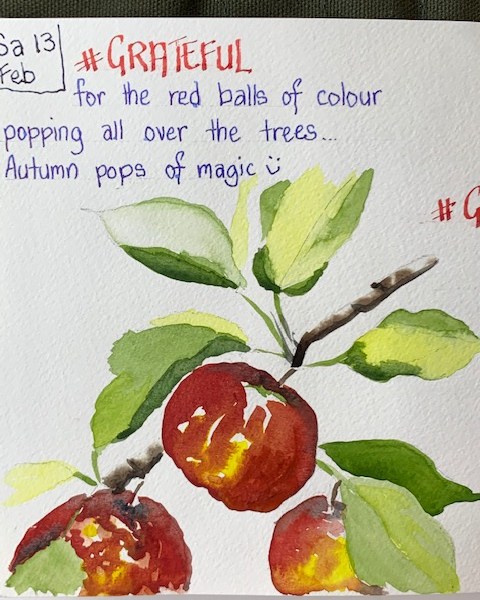 Sa 13
Feb
#GRATEFUL
for the red balls of colour
popping all over the trees...
Autumn pops of magic ü
#G